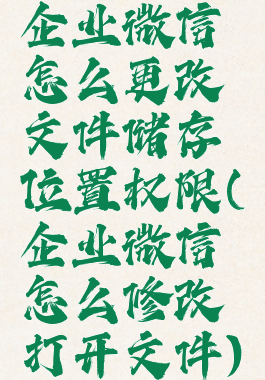 企业微信
怎么更改
文件储存
位置权限(
企业微信
怎么修改
打开文件)